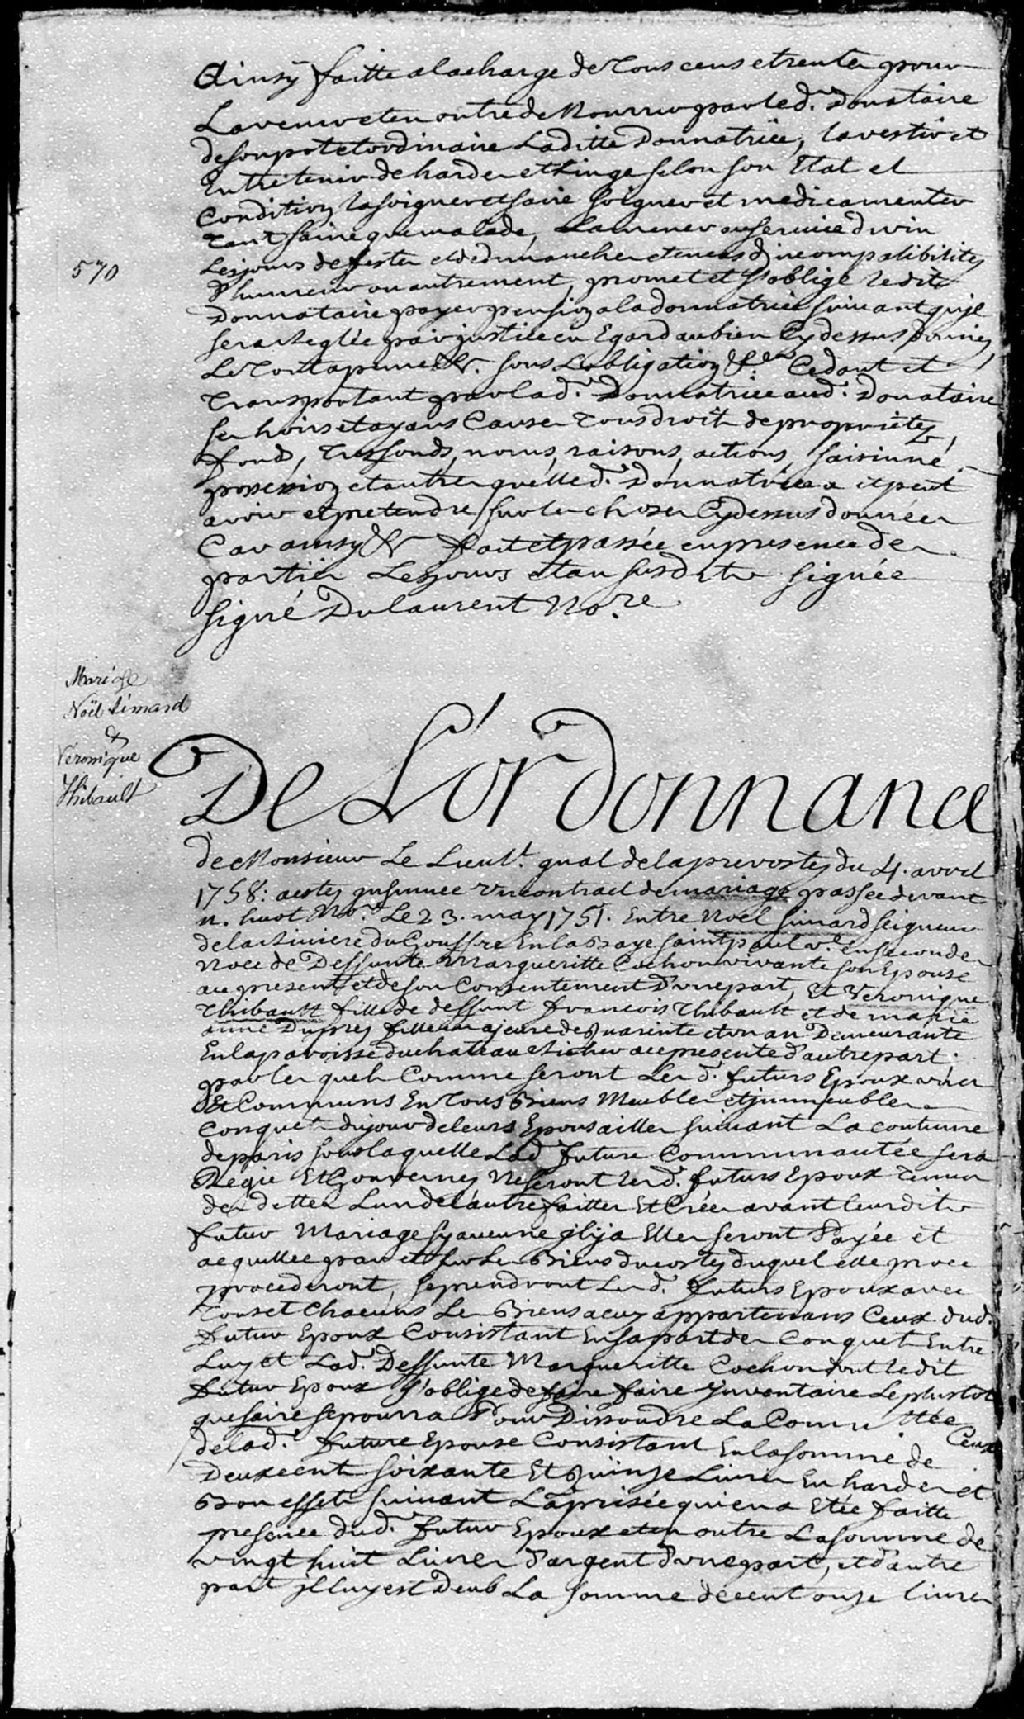 Ainsy faitte a la charge de tous cens et rentes pour
L'avenir et en outre de Nourrir par led. Donataire
de son pot et ordinaire Laditte Donnatrice, la vestir et
Entretenir de hardes et Linge selon son Etat et
Condition, la soigner et faire soigner et medicamenter
tant saine que malade, La mener au service divin
Les jours de festes et de dimanches et en cas d'incompatibilités
d'humeur ou autrement, promet et s'oblige ledit
Donnataire payer pension a la donnatrice suivant qu'il
sera Reglée par justice eu Egard au bien Cy dessus donnés
Le tout a peine &. sous L'obligation &. Cedant et
Transportant par lad. Donnatrice aud. Donataire
ses hoirs et ayans Cause tous droit de propriétés,
fond, Tresfonds, noms, raisons, actions, saisinne
possession et autres que lled. Donnatrice a et peut
avoir et pretendre sur les choses Cy dessus données
Car ainsy &. Fait et passée en presence des
partiés Les jours et an susdits signée
signé Dulaurent No.re
570
Mariage
Noël Simard
&
Veronique
Thibault
De L'ordonnance
de Monsieur Le Lieut. gnal de la prevostés du 4. avril
1758: a estés insinuee un contract de mariage passée devant
n. huot No.re Le 23. may 1751. Entre Noël Simard seigneur
de la Riviere du Gouffre En la Baye saint paul v.e en secondes
Noce de Deffunte Margueritte Cochon vivante son Epouse
ace present et de son Consentement D'une part, Et Veronique
Thibault fille de deffunt François Thibault et de marie
anne Dupres fille majeure de quarante et un an Demeurante
En la paroisse du chateau Richer ace presente d'autre part.
par les quels Comme seront Les d. futurs Epoux unies
Et Communs En tous Biens Meubles et jmmeubles
Conquets du jour de leurs Epousailles suivant La coutume
de paris sous la quelle Lad. future Communautée sera
Regie Et Gouvernés Ne seront les d. futurs Epoux tenus
des dettes L'un de L'autre faittes Et Crées avant leurdit
futur Mariage sy aucune il y a Elles seront Payée et
acquittee par et sur les Biens du costés duquel elle
procederont, se prendront Les d. futurs Epoux avec
tous et Chacuns Le Biens a eux appartenans Ceux dud.
Futur Epoux Consistant En sa part des Conquet Entre
Luy et Lad. Deffunte Margueritte Cochon dont ledit
futur Epoux s'oblige de faire faire Jnventaire Le plustot
que faire se pourra Pour Dissoudre La Comm.ttée
Ceux
de lad. future Epouse Consistant En la somme de
Deux cent soixante Et Quinze Livres En hardes et
Bon effets suivant La prisée qui en a Etée faitte
presence dud. futur Epoux et en outre La somme de
vingt huit Livres d'argent d'une part, et d'autre
part jl luy est Deub La somme de cent onze livres